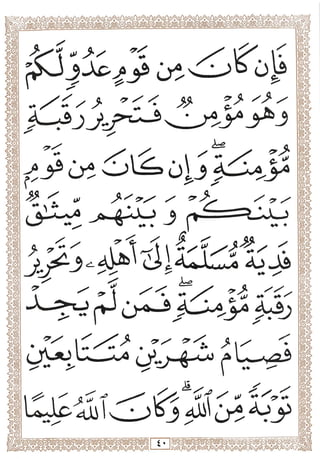 فَإِن كَانَ مِن قَوْمٍ عَدُوٍّ لَّكُمْ
وَهُوَ مُؤْمِنٌ فَتَحْرِيرُ رَقَبَةٍ
مُّؤْمِنَةٍ ۖ وَإِن كَانَ مِن قَوْمٍ
بَيْنَكُمْ وَبَيْنَهُم مِّيثَٰقٌ
فَدِيَةٌ مُّسَلَّمَةٌ إِلَىٰٓ أَهْلِهِۦ وَتَحْرِيرُ
رَقَبَةٍ مُّؤْمِنَةٍ ۖ فَمَن لَّمْ يَجِدْ
فَصِيَامُ شَهْرَيْنِ مُتَتَابِعَيْنِ
تَوْبَةً مِّنَ ٱللَّهِ ۗ وَكَانَ ٱللَّهُ عَلِيمًا
٤٠